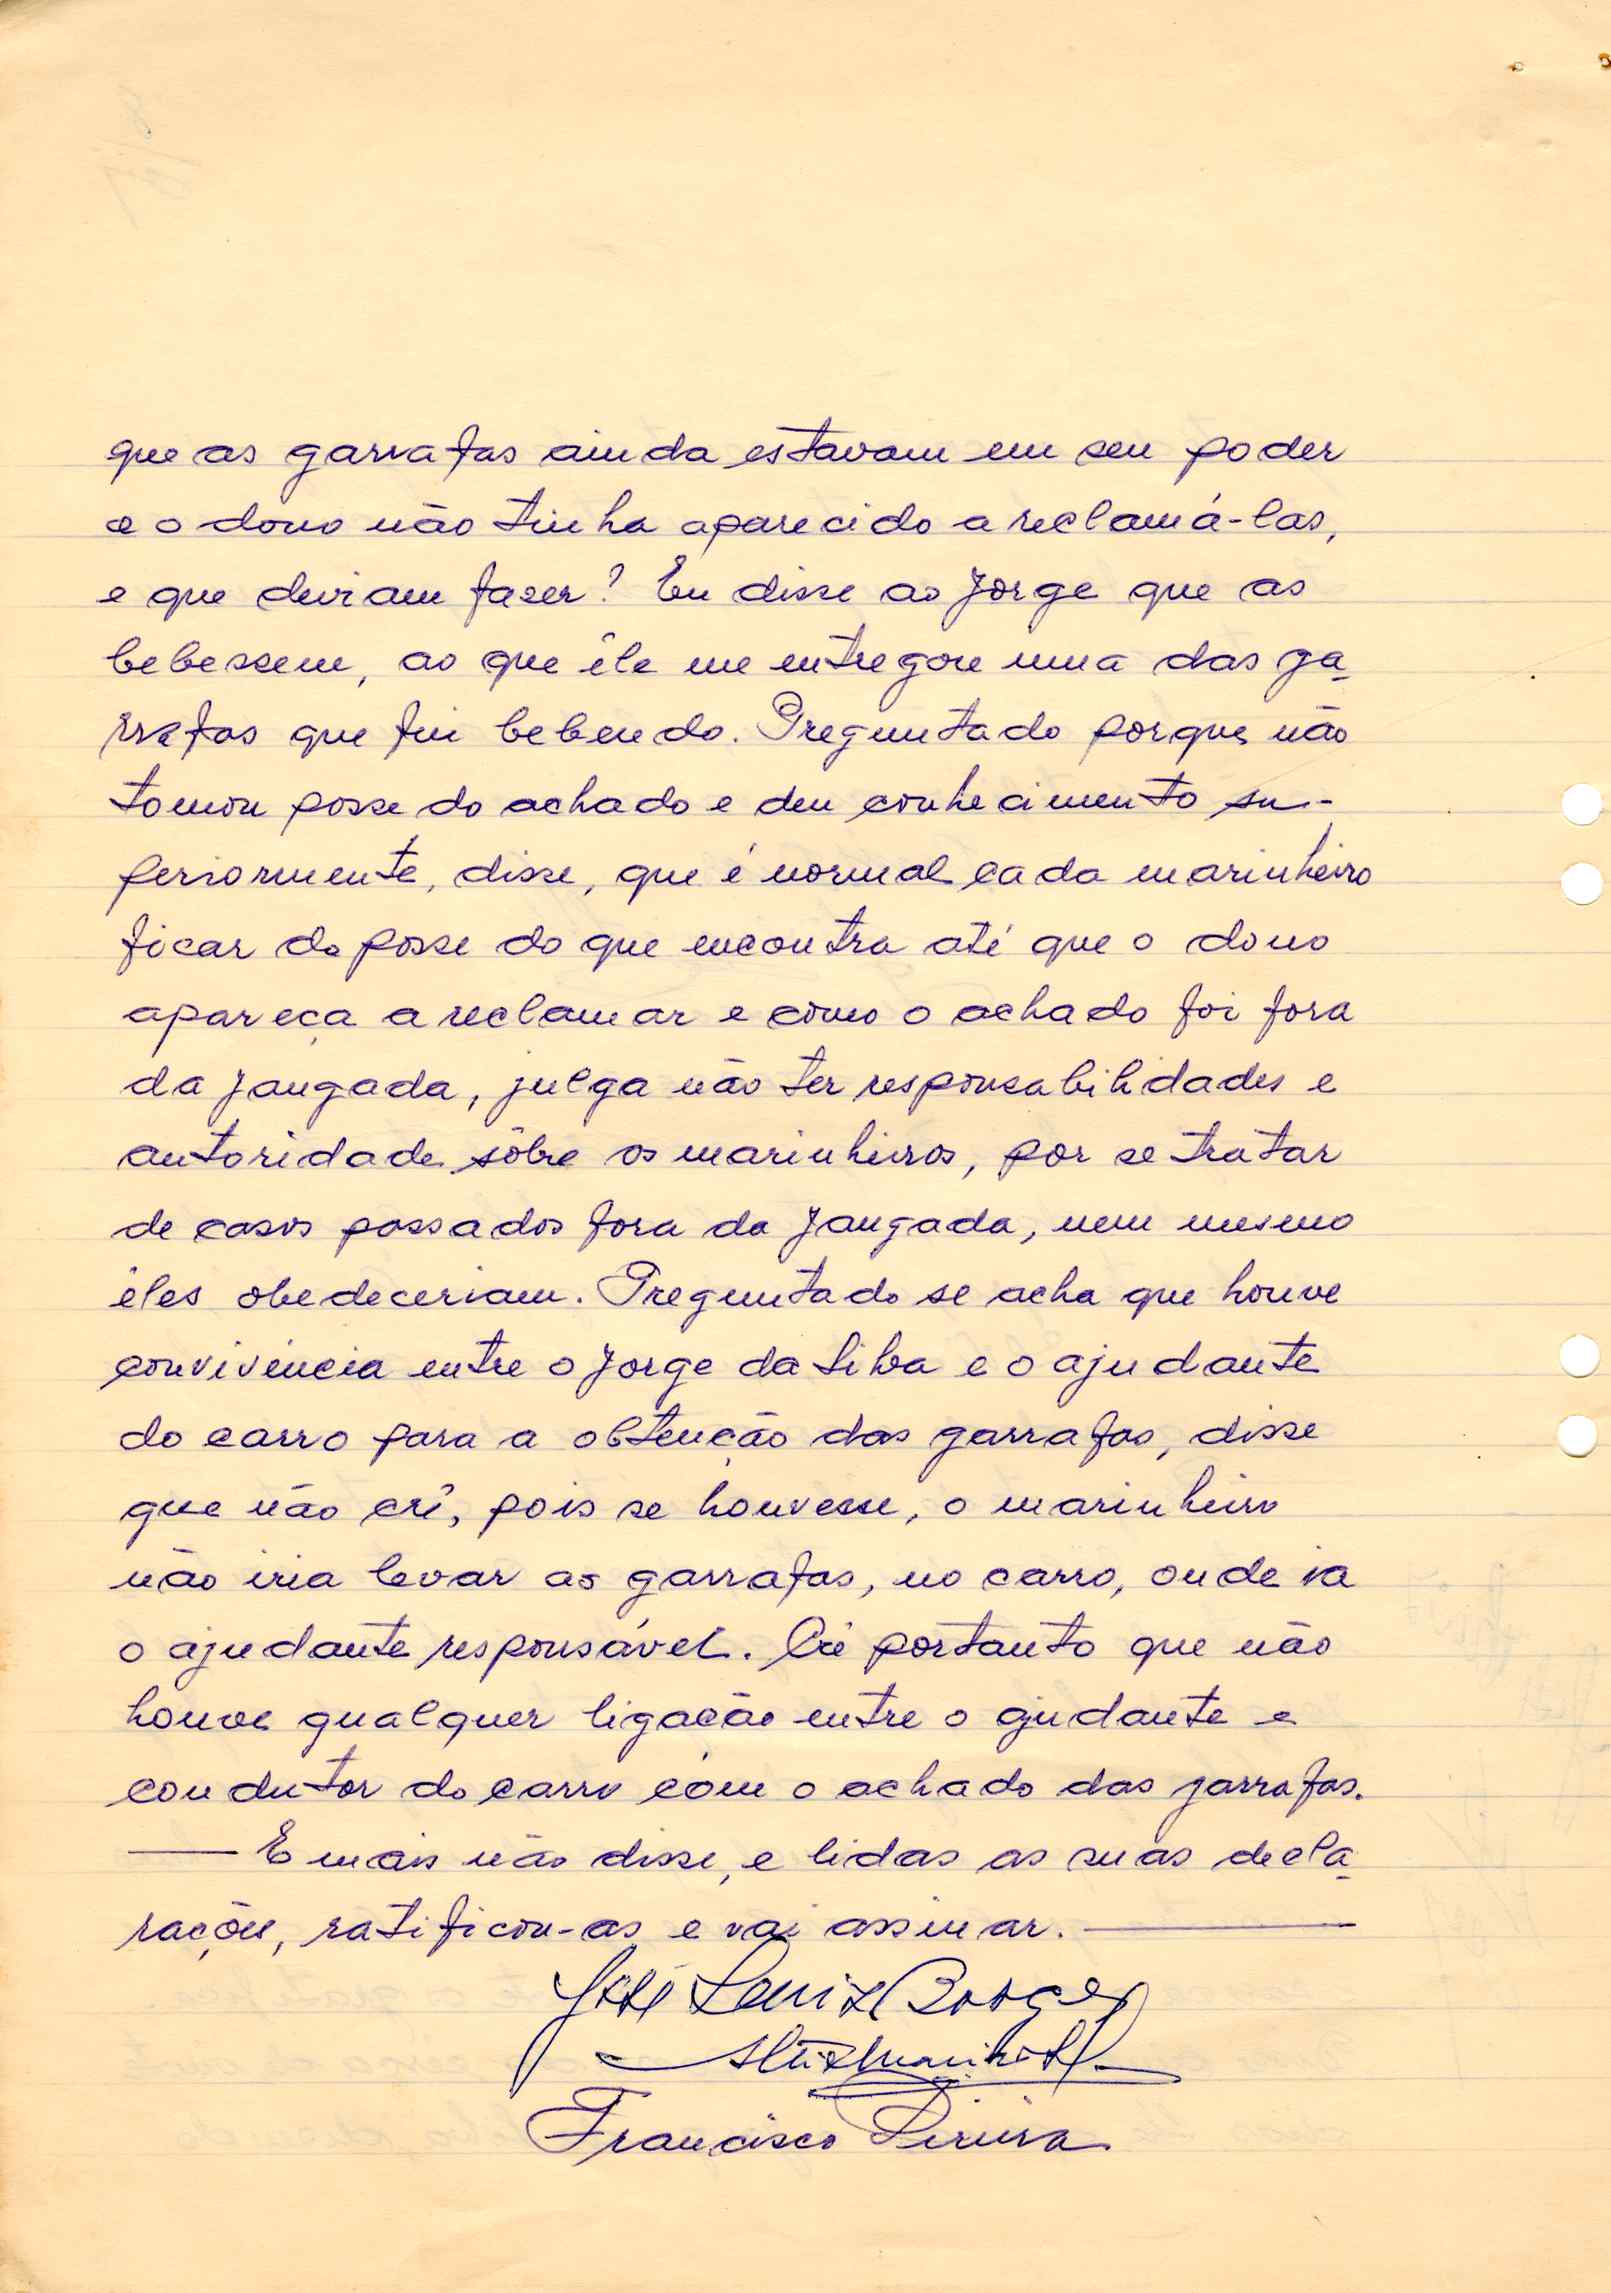 que as garrafas ainda estavam em seu poder
e o dono não tinha aparecido a reclamá-las,
e que deviam fazer? Eu disse ao Jorge que as
bebessem, ao que êle me entregou uma das ga-
rrafas que fui bebendo. Preguntado porque não
tomou posse do achado e deu conhecimento su-
periormente, disse, que é normal cada marinheiro
ficar de posse do que encontra até que o dono
apareça a reclamar e como o achado foi fora
da Jangada, julga não ter responsabilidades e
autoridade sôbre os marinheiros, por se tratar
de casos passados fora da Jangada, nem mesmo
êles obedeceriam. Preguntado se acha que houve
convivência entre o Jorge da Silva e o ajudante
do carro para a obtenção das garrafas, disse
que não crê, pois se houvesse, o marinheiro
não iria levar as garrafas, no carro, onde ia
o ajudante responsável. Crê portanto que não
houve qualquer ligação entre o ajudante e
condutor do carro com o achado das garrafas.
E mais não disse, e lidas as suas decla-
rações, ratificou-as e vai assinar.
José Luis Borges
Francisco Pereira